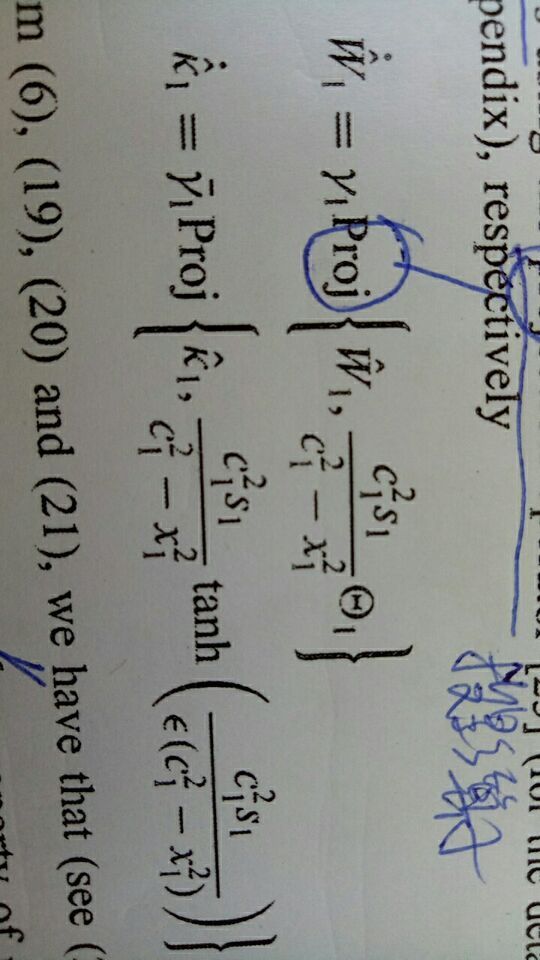 pendix), respectively
投影算
\dot{\hat{W}}_1 = γ_1 Proj { \hat{W}_1, \frac{c_1^2 s_1}{c_1^2 − x_1^2} Θ_1 }
\dot{\hat{κ}}_1 = \bar{γ}_1 Proj { \hat{κ}_1, \frac{c_1^2 s_1}{c_1^2 − x_1^2} tanh ( \frac{c_1^2 s_1}{ϵ(c_1^2 − x_1^2)} ) }
m (6), (19), (20) and (21), we have that (see (